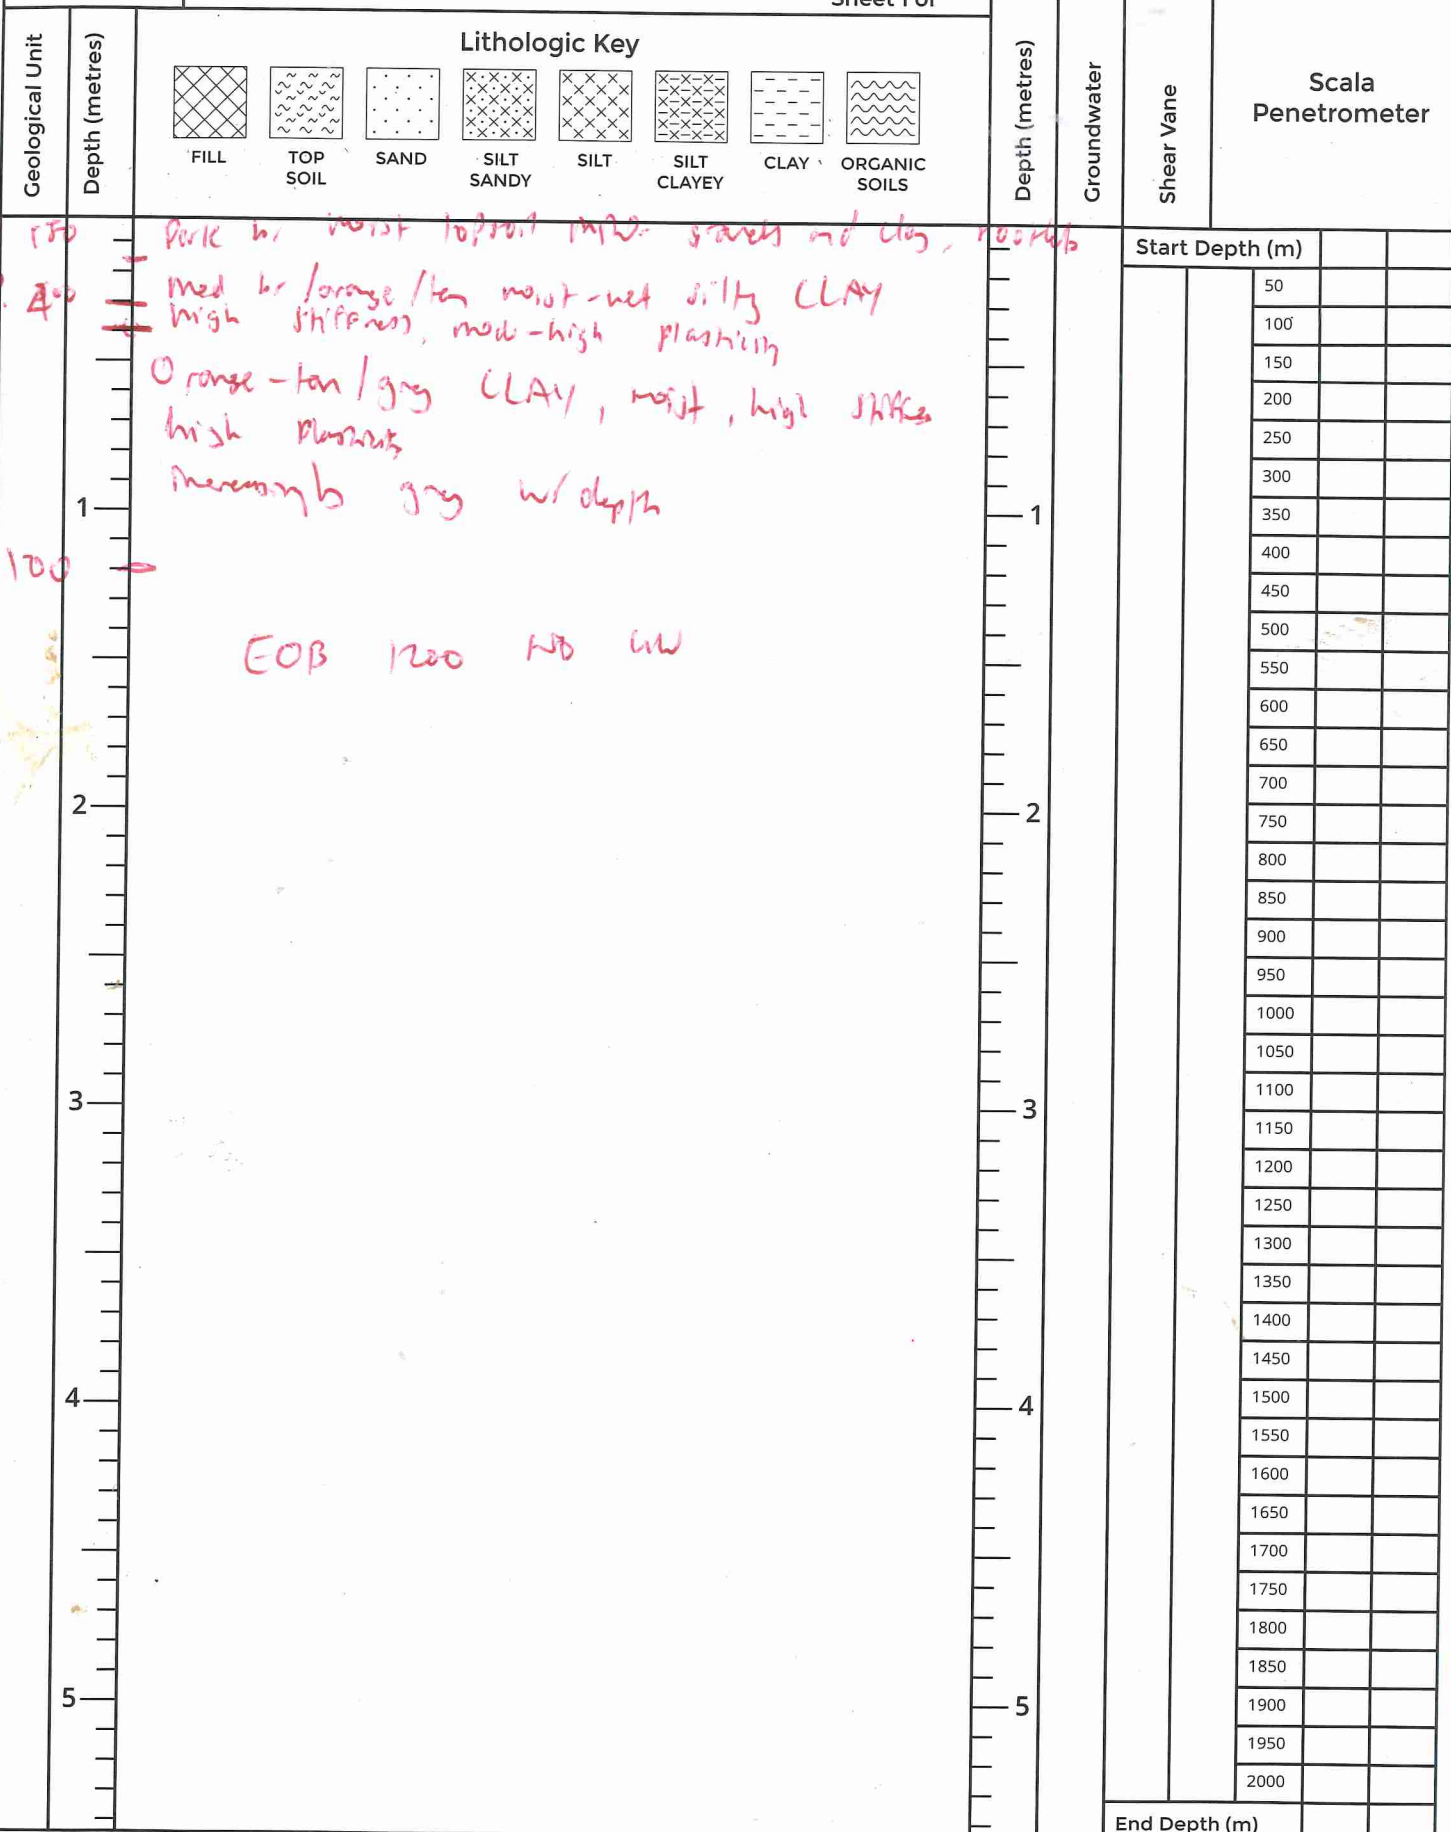 Sheet 1 of
Geological Unit
Depth (metres)
Lithologic Key
FILL
TOP SOIL
SAND
SILT SANDY
SILT
SILT CLAYEY
CLAY
ORGANIC SOILS
Depth (metres)
Groundwater
Shear Vane
Scala
Penetrometer
150 Dark br moist topsoil gravels and clay, rootlets
Start Depth (m)
400 med br/orange/tan moist-wet silty CLAY
high stiffness, mod-high plasticity
Orange-tan/grey CLAY, moist, high stiffness
high plasticity
increasingly grey w/ depth
1
1
1200
EOB 1200 NO GW
2
2
3
3
4
4
5
5
50
100
150
200
250
300
350
400
450
500
550
600
650
700
750
800
850
900
950
1000
1050
1100
1150
1200
1250
1300
1350
1400
1450
1500
1550
1600
1650
1700
1750
1800
1850
1900
1950
2000
End Depth (m)